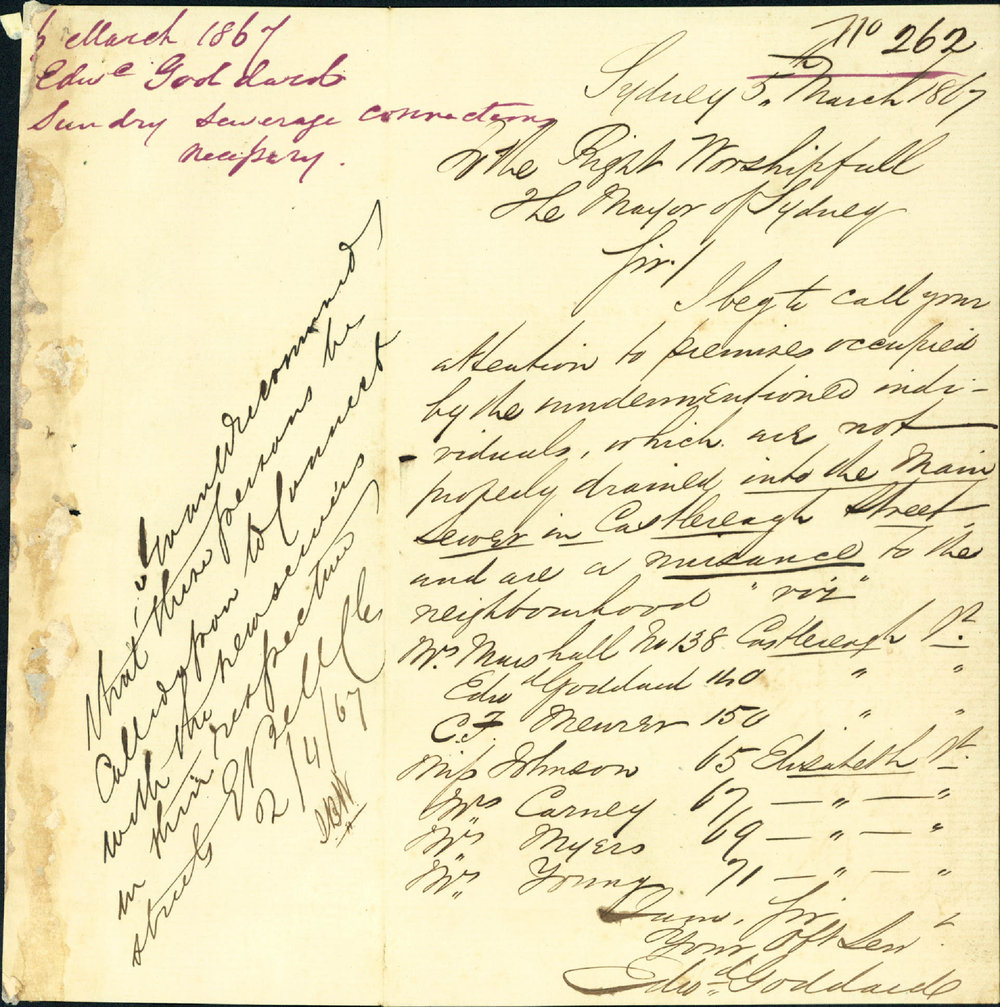 6 March 1867
Edwd Goddard
Sundry sewerage connections
necessary.
No 262
Sydney 5th March 1867
To the Right Worshipfull
The Mayor of Sydney
Sir /
I beg to call your
attention to premises occupied
by the undermentioned indi-
viduals, which are not
properly drained into the Main
Sewer in Castlereagh Street,
and are a nuisance to the
neighbourhood "viz"
Mrs Marshall No 138 Castlereagh St.
Edwd Goddard 140 " "
C. F. Meurer 150 " "
Miss Johnson 65 Elizabeth St.
Mrs Carney 67 — " — "
Mrs Myers 69 — " — "
Mrs Young 71 — " — "
I am, Sir,
Your Obt Servt
Edwd Goddard
I would recommend
that these persons be
called upon to connect
with the new sewers
in their respective
streets E Bell CE
2/4/67